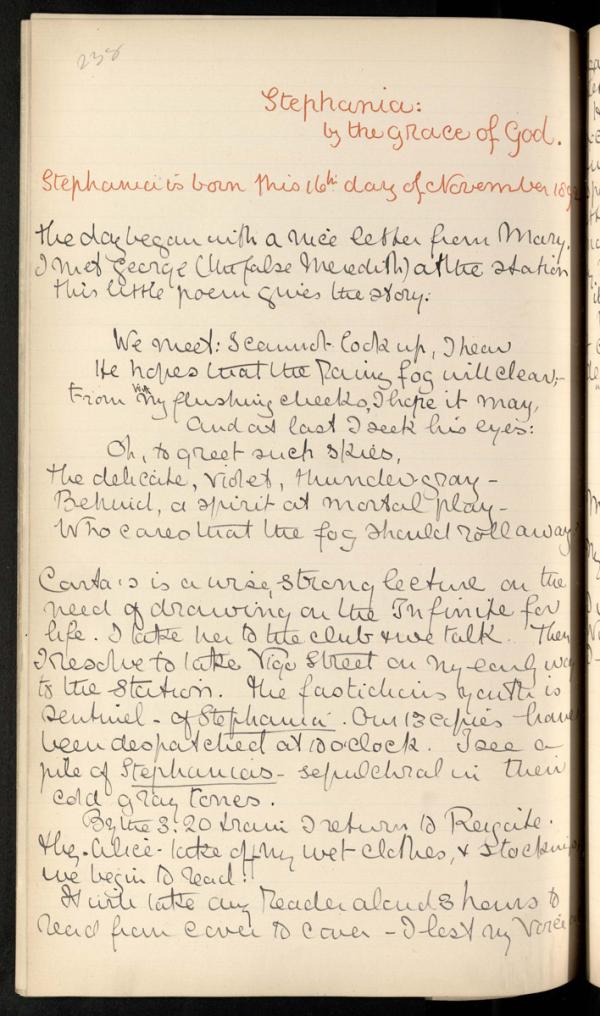 238
Stephania:
by the grace of God.
Stephania is born this 16th day of November 189
The day began with a nice letter from Mary.
I met George (the false Meredith) at the station
this little poem gives the story:
We meet: I cannot look up, I hear
He hopes that the rainy fog will clear:-
From my flushing cheeks, I hope it may,
And at last I seek his eyes:
Oh, to greet such skies,
The delicate, violet, thunder-gray -
Behind, a spirit at mortal play -
Who cares that the fog should roll away
is a wise, strong lecture on the
need of drawing on the Infinite for
life. I take her to the club & we talk. Then
I resolve to take Vigo Street on my early way
to the station. The fastidious youth is
sentinel - of Stephania. Our 13 copies have
been despatched at 10 o'clock. I see a
pile of Stephanias - sepulchral in their
cold gray tones.
By the 3:20 train I return to Reigate.
They - Alice - take off my wet clothes, &
we begin to read!
It will take any reader aloud 3 hours to
read from cover to cover - I lost my voice